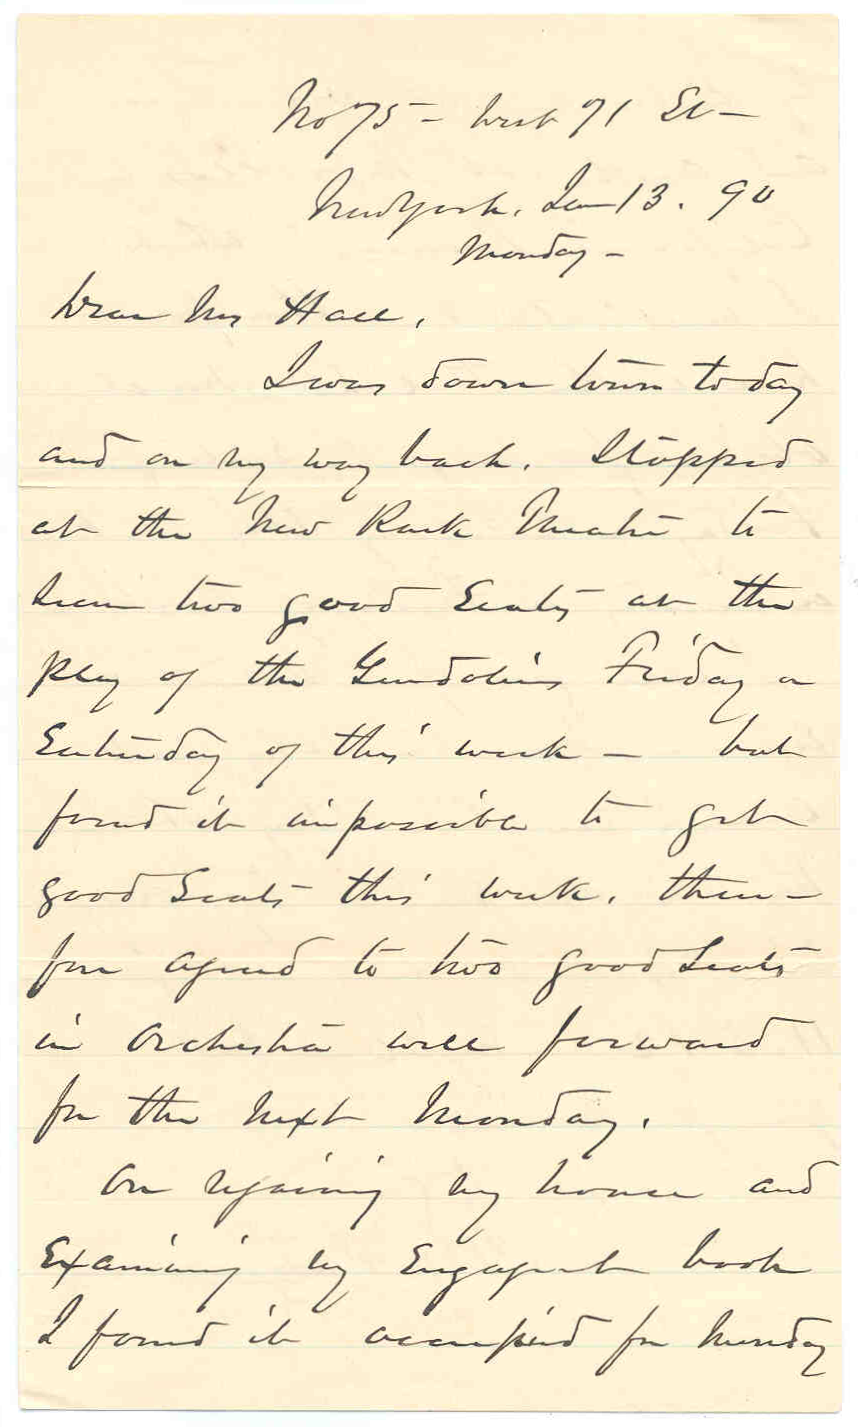 No 75 - West 71 St -
New York. Jan 13. 90
Monday -
Dear Mr Hall,
I was down town to day
and on my way back. Stopped
at the New Park Theatre to
secure two good Seats at the
play of the Gondoliers Friday or
Saturday of this week - but
found it impossible to get
good Seats this week. there-
fore agreed to two good Seats
in Orchestra well forward
for the next Monday.
On regaining my house and
Examining my Engagement book
I found it occupied for Monday